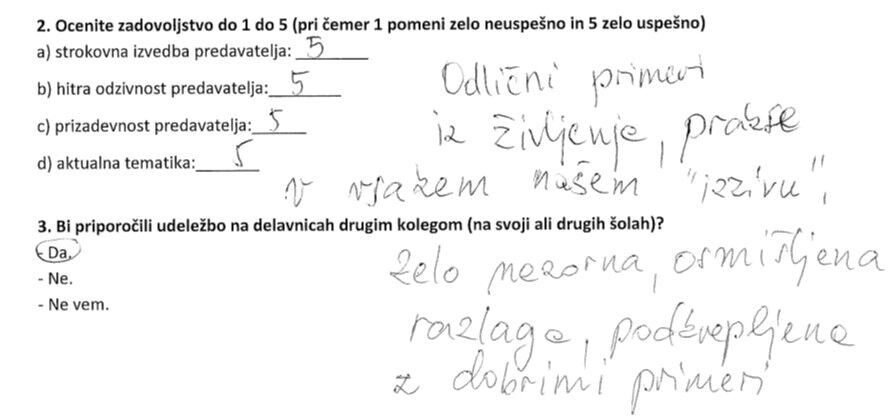 2. Ocenite zadovoljstvo do 1 do 5 (pri čemer 1 pomeni zelo neuspešno in 5 zelo uspešno)
a) strokovna izvedba predavatelja: 5
b) hitra odzivnost predavatelja: 5
c) prizadevnost predavatelja: 5
d) aktualna tematika: 5
Odlični primeri
iz življenje, prakse
v vsakem našem "izzivu",
3. Bi priporočili udeležbo na delavnicah drugim kolegom (na svoji ali drugih šolah)?
- Da.
- Ne.
- Ne vem.
zelo nazorna, osmišljena
razlaga, podkrepljena
z dobrimi primeri